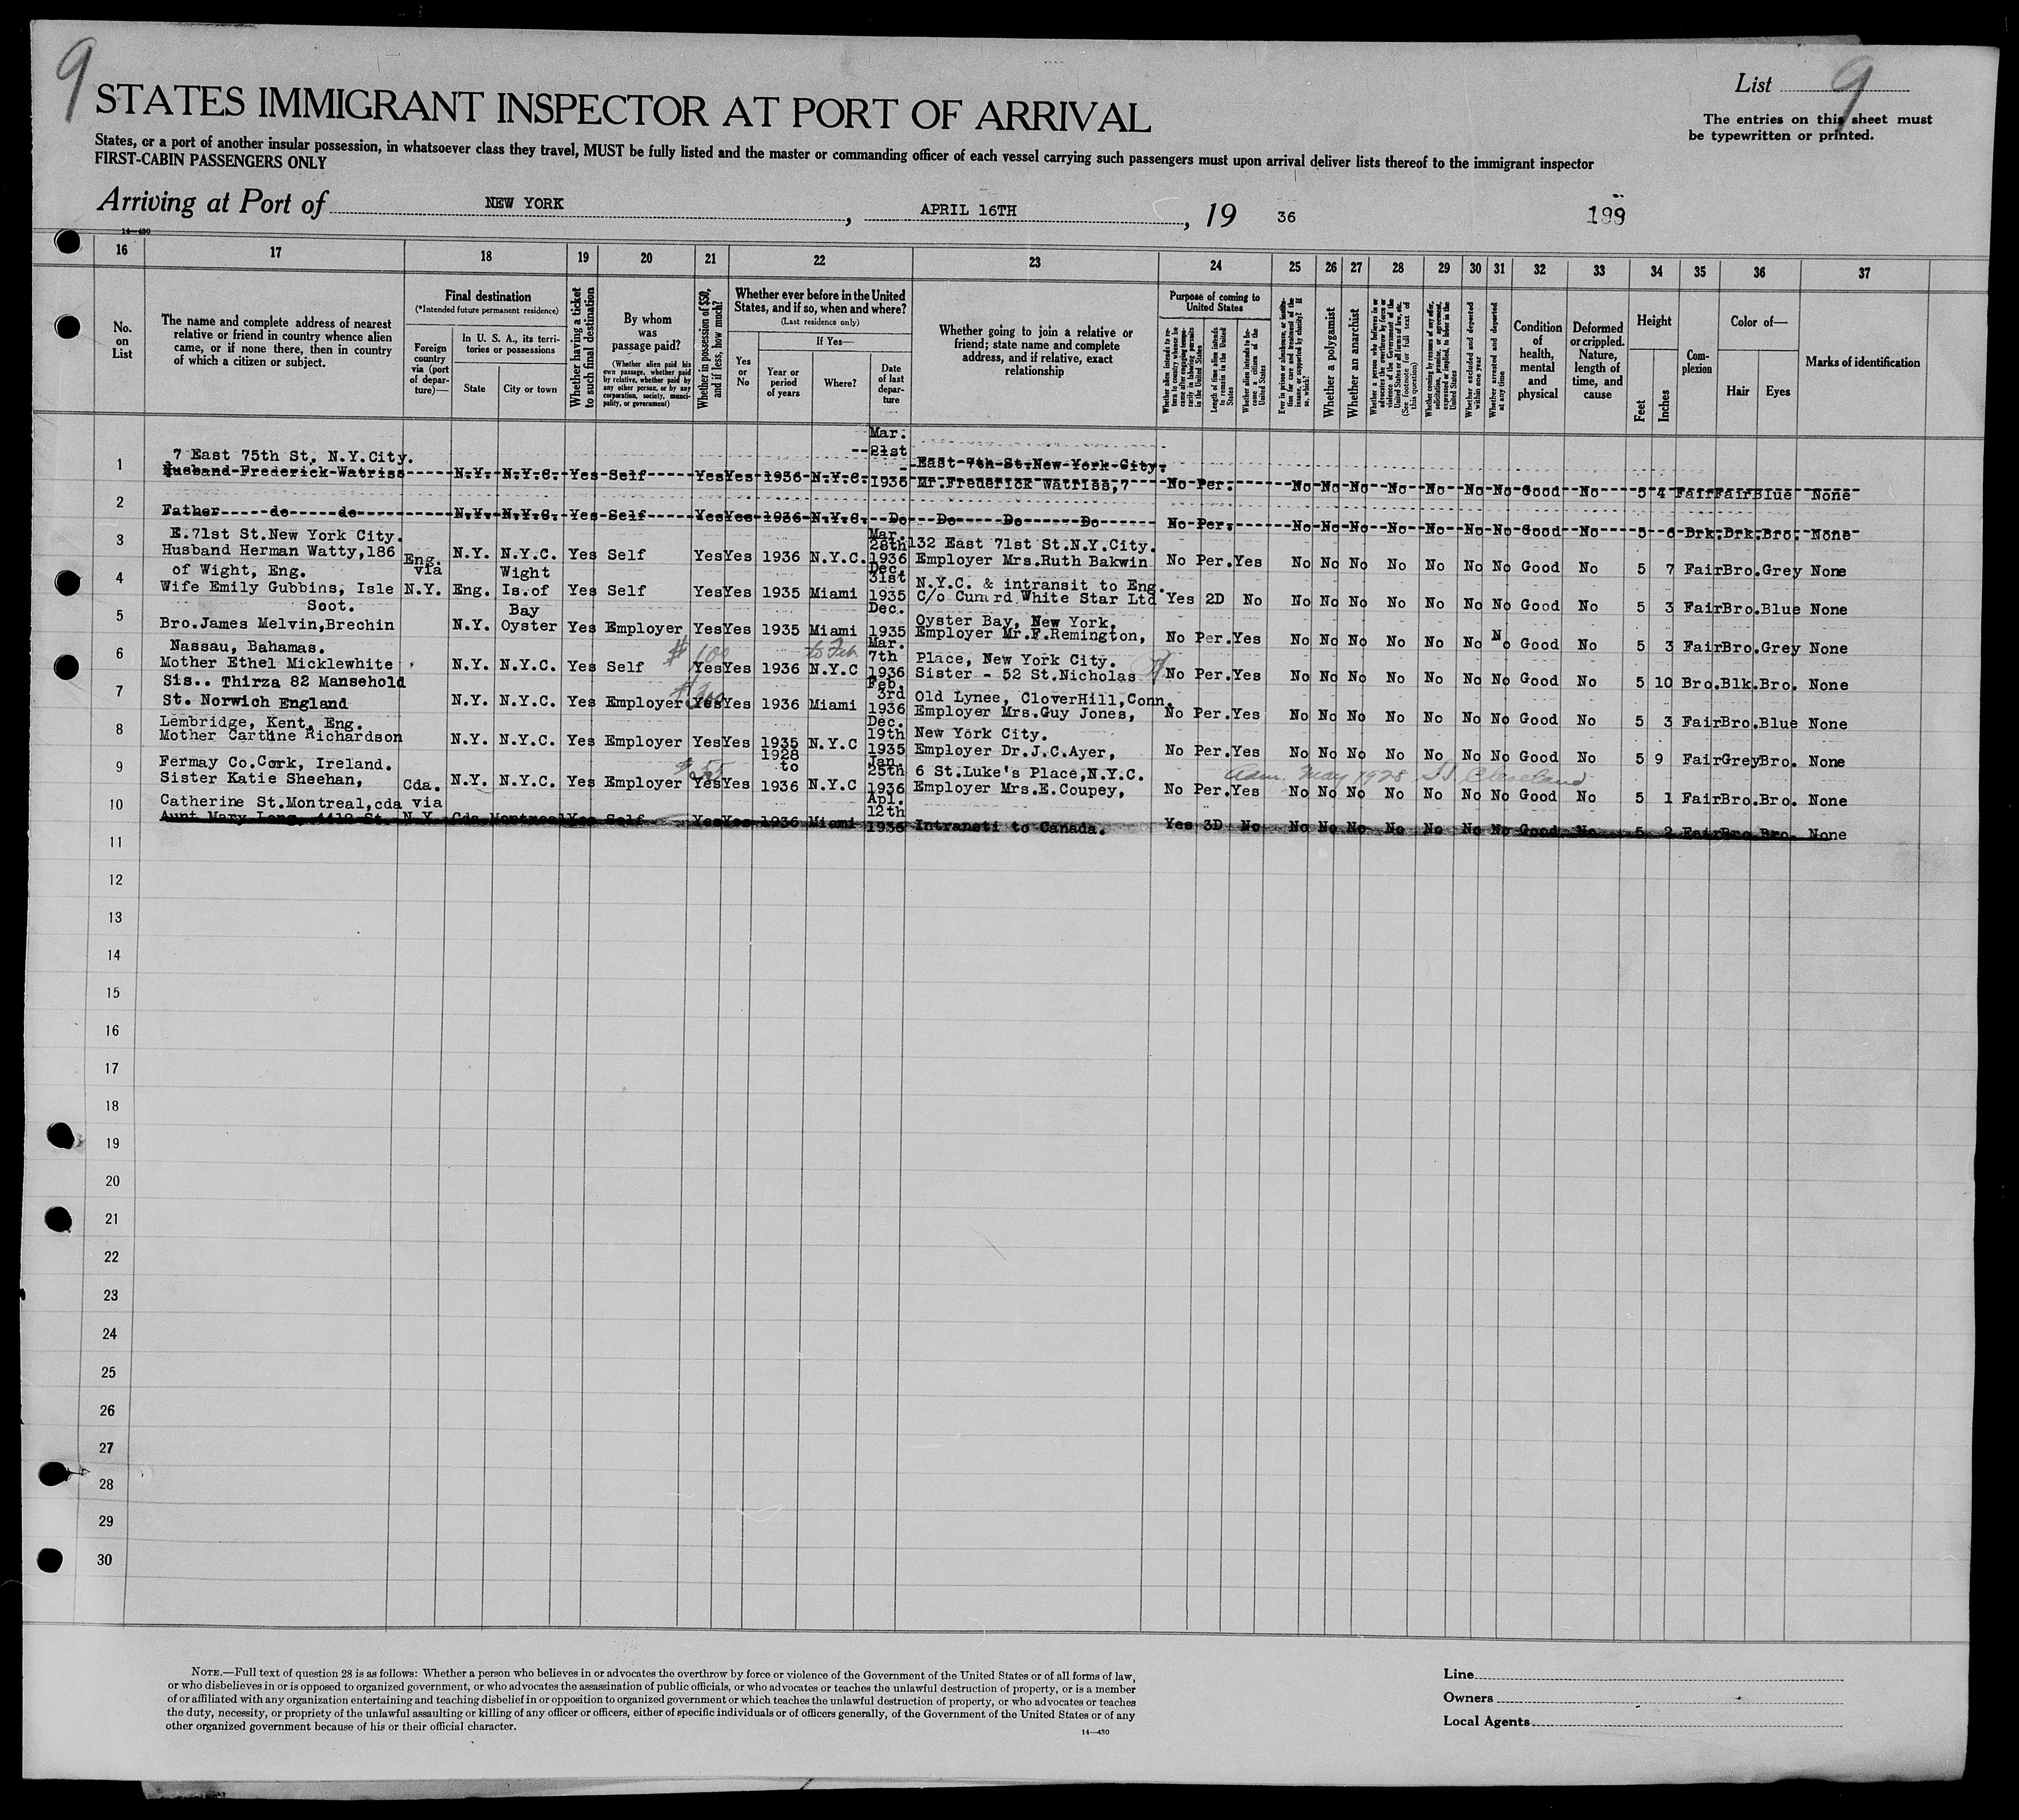 9
List 9
STATES IMMIGRANT INSPECTOR AT PORT OF ARRIVAL
The entries on this sheet must
be typewritten or printed.
States, or a port of another insular possession, in whatsoever class they travel, MUST be fully listed and the master or commanding officer of each vessel carrying such passengers must upon arrival deliver lists thereof to the immigrant inspector
FIRST-CABIN PASSENGERS ONLY
Arriving at Port of NEW YORK, APRIL 16TH, 19 36
199
14—430
16 17 18 19 20 21 22 23 24 25 26 27 28 29 30 31 32 33 34 35 36 37
No. on List
The name and complete address of nearest
relative or friend in country whence alien
came, or if none there, then in country
of which a citizen or subject.
Final destination
(*Intended future permanent residence)
Foreign country via (port of departure)—
In U. S. A., its territories or possessions
State
City or town
Whether having a ticket to such final destination
By whom was passage paid?
(Whether alien paid his own passage, whether paid by relative, whether paid by any other person, or by any corporation, society, municipality, or government)
Whether in possession of $50, and if less, how much?
Whether ever before in the United States, and if so, when and where?
(Last residence only)
Yes or No
If Yes—
Year or period of years
Where?
Date of last departure
Whether going to join a relative or
friend; state name and complete
address, and if relative, exact
relationship
Purpose of coming to United States
Length of time alien intends to remain in the United States
Whether alien intends to become a citizen of the United States
Whether a polygamist
Whether an anarchist
(See footnote for full text of this question)
Whether excluded and deported within one year
Whether arrested and deported at any time
Condition of health, mental and physical
Deformed or crippled. Nature, length of time, and cause
Height
Feet
Inches
Complexion
Color of—
Hair
Eyes
Marks of identification
1 7 East 75th St, N.Y.City. Mar. 21st East 7th St.New York City.
Husband Frederick Watriss N.Y. N.Y.C. Yes Self Yes Yes 1936 N.Y.C. 1936 Mr.Frederick Watriss,7 No Per. No No No No No No No Good No 5 4 Fair Fair Blue None
2 Father do do N.Y. N.Y.C. Yes Self Yes Yes 1936 N.Y.C. Do Do Do Do No Per. No No No No No No No Good No 5 6 Drk. Drk. Bro. None
3 E.71st St.New York City. Mar. 28th 132 East 71st St.N.Y.City.
Husband Herman Watty,186 N.Y. N.Y.C. Yes Self Yes Yes 1936 N.Y.C. 1936 Employer Mrs.Ruth Bakwin No Per. Yes No No No No No No No Good No 5 7 Fair Bro. Grey None
4 of Wight, Eng. Eng. via Wight Dec. 31st N.Y.C. & intransit to Eng.
Wife Emily Gubbins, Isle N.Y. Eng. Is.of Yes Self Yes Yes 1935 Miami 1935 C/o Cunard White Star Ltd Yes 2D No No No No No No No No Good No 5 3 Fair Bro. Blue None
5 Scot. Bay Dec. Oyster Bay, New York.
Bro.James Melvin,Brechin N.Y. Oyster Yes Employer Yes Yes 1935 Miami 1935 Employer Mr.F.Remington, No Per. Yes No No No No No No No Good No 5 3 Fair Bro. Grey None
6 Nassau, Bahamas. $100 to Feb Mar. 7th Place, New York City.
Mother Ethel Micklewhite N.Y. N.Y.C. Yes Self Yes Yes 1936 N.Y.C 1936 Sister - 52 St.Nicholas No Per. Yes No No No No No No No Good No 5 10 Bro. Blk. Bro. None
7 Sis.. Thirza 82 Mansehold Feb. 3rd Old Lynee, CloverHill,Conn.
St. Norwich England N.Y. N.Y.C. Yes Employer Yes Yes 1936 Miami 1936 Employer Mrs.Guy Jones, No Per. Yes No No No No No No No Good No 5 3 Fair Bro. Blue None
8 Lembridge, Kent, Eng. Dec. 19th New York City.
Mother Richardson N.Y. N.Y.C. Yes Employer Yes Yes 1935 N.Y.C 1935 Employer Dr.J.C.Ayer, No Per. Yes No No No No No No No Good No 5 9 Fair Grey Bro. None
9 Fermay Co.Cork, Ireland. 1928 to Jan. 25th 6 St.Luke's Place,N.Y.C. Adm. May 1928 SS Cleveland
Sister Katie Sheehan, N.Y. N.Y.C. Yes Employer Yes Yes 1936 N.Y.C 1936 Employer Mrs.E.Coupey, No Per. Yes No No No No No No No Good No 5 1 Fair Bro. Bro. None
10 Catherine St.Montreal,cda Cda. via Apl. 12th
Aunt Mary Long, 4418 St. N.Y. Cda Montreal Yes Self Yes Yes 1936 Miami 1936 Intransti to Canada. Yes 3D No No No No No No No No Good No 5 2 Fair Bro. Bro. None
11
12
13
14
15
16
17
18
19
20
21
22
23
24
25
26
27
28
29
30
NOTE.—Full text of question 28 is as follows: Whether a person who believes in or advocates the overthrow by force or violence of the Government of the United States or of all forms of law,
or who disbelieves in or is opposed to organized government, or who advocates the assassination of public officials, or who advocates or teaches the unlawful destruction of property, or is a member
of or affiliated with any organization entertaining and teaching disbelief in or opposition to organized government or which teaches the unlawful destruction of property, or who advocates or teaches
the duty, necessity, or propriety of the unlawful assaulting or killing of any officer or officers, either of specific individuals or of officers generally, of the Government of the United States or of any
other organized government because of his or their official character.
14—430
Line
Owners
Local Agents